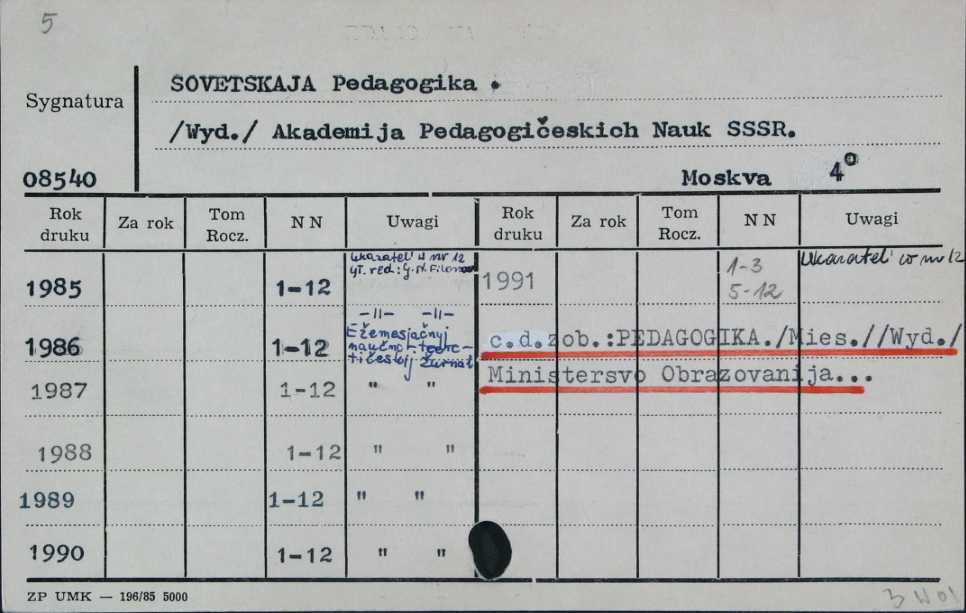 5
SOVETSKAJA Pedagogika .
Sygnatura
/Wyd./ Akademija Pedagogičeskich Nauk SSSR.
08540
Moskva 4°
Rok druku Za rok Tom Rocz. N N Uwagi Rok druku Za rok Tom Rocz. N N Uwagi
1985 1-12 Ukazatel' w nr 12
gł. red.: G. N. Filonow
1991 1-3
5-12
Ukazatel' w nr 12
1986 1-12 -"- -"-
Ežemesjačnyj
naučno-teore-
tičeskij žurnal
c.d.zob.:PEDAGOGIKA./Mies.//Wyd./
Ministersvo Obrazovanija...
1987 1-12 " "
1988 1-12 " "
1989 1-12 " "
1990 1-12 " "
ZP UMK — 196/85 5000